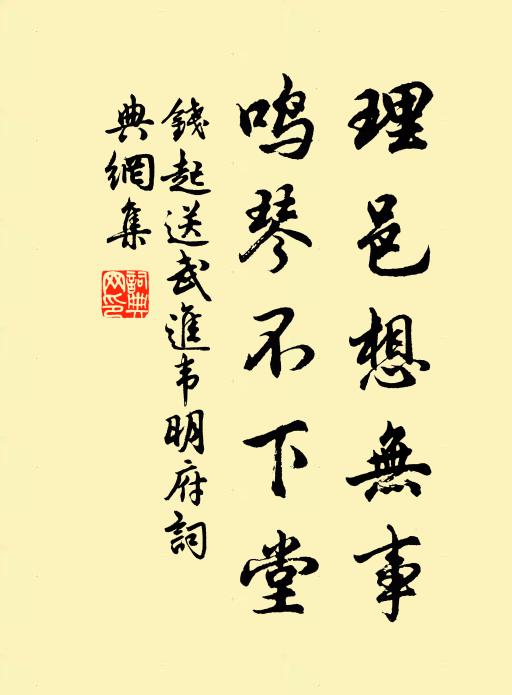 理邑想無事
鳴琴不下堂
錢起送武進韦明府詞
典網集
詞典
网印